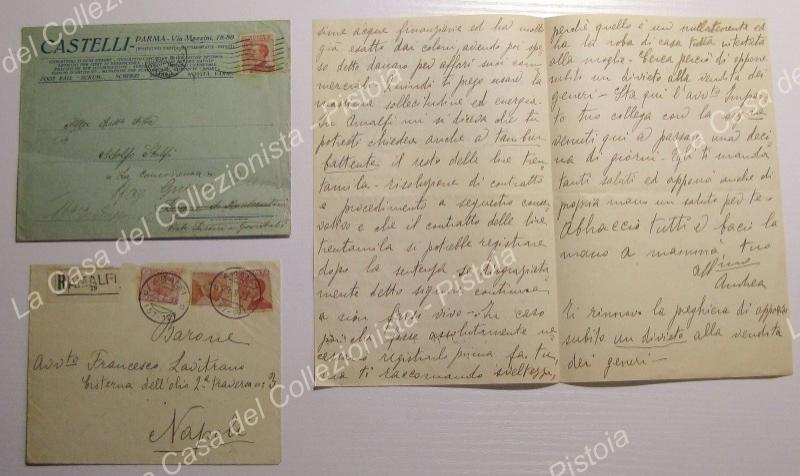 CASTELLI - PARMA - Via Mazzini,
FOOT BALL - SCRUM. - SCHERZI
Adolfo
La concorrenza
RAMALFI
Barone
Avv.to Francesco Lavitrano
Cisterna dell'olio 2ª traversa n: 3
Napoli
sime acque finanziarie ed ha molto
già esatto dai coloni, avendo poi spe
so detto danaro per affari suoi com
merciali. Quindi ti prego usare la
massima sollecitudine ed energia.
In Amalfi mi si diceva che tu
potresti chiedere anche a tambur
battente il resto delle lire tren
tamila - risoluzione di contratto
e procedimento a sequestro conser
vativo e che il contratto delle lire
trentamila si potrebbe registrare
dopo la sentenza, se disgraziata
mente detto signore continuasse
a non farsi vivo - In caso
poi che fosse assolutamente ne
cessario registrarlo prima fa tu,
ma ti raccomando sveltezza,
perchè quello è un nullatenente ed
ha la roba di casa tutta intestata
alla moglie. Cerca perciò di opporre
subito un divieto alla vendita dei
generi - Sta qui l'avv.to
to tuo collega con la signora
venuti qui a passare una deci
na di giorni - Egli ti manda
tanti saluti ed apporrà anche di
propria mano un saluto per te -
Abbraccio tutti e bacio la
mano a mammà tuo
aff.mo
Andrea
Ti rinnovo la preghiera di opporre
subito un divieto alla vendita
dei generi -
La Casa del Collezionista - Pistoia